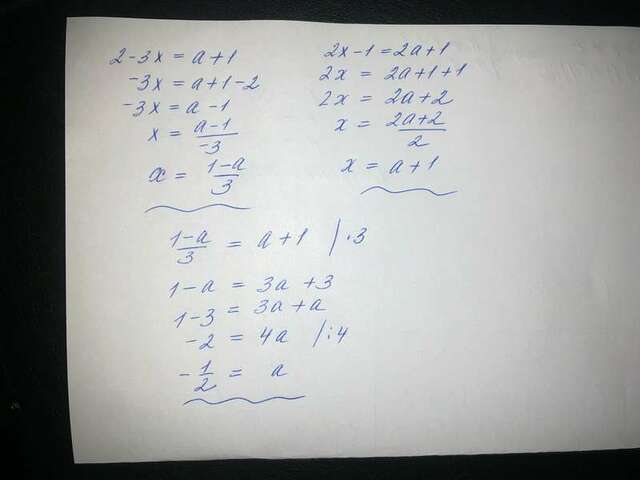 2-3x = a+1
-3x = a+1-2
-3x = a-1
x = \frac{a-1}{-3}
x = \frac{1-a}{3}
2x-1 = 2a+1
2x = 2a+1+1
2x = 2a+2
x = \frac{2a+2}{2}
x = a+1
\frac{1-a}{3} = a+1 /·3
1-a = 3a+3
1-3 = 3a+a
-2 = 4a /:4
-\frac{1}{2} = a